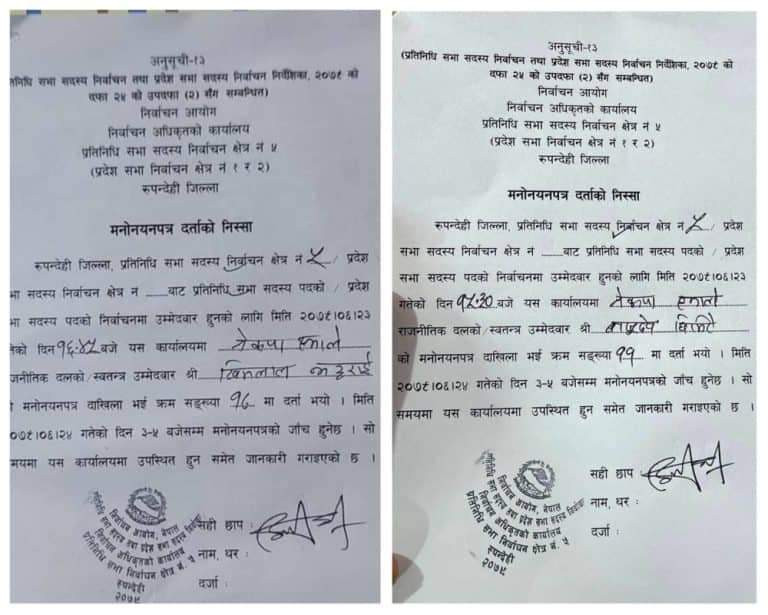 अनुसूची-१३
तिनिधि सभा सदस्य निर्वाचन तथा प्रदेश सभा सदस्य निर्वाचन निर्देशिका, २०७९ को
दफा २४ को उपदफा (२) सँग सम्बन्धित)
निर्वाचन आयोग
निर्वाचन अधिकृतको कार्यालय
प्रतिनिधि सभा सदस्य निर्वाचन क्षेत्र नं ५
(प्रदेश सभा निर्वाचन क्षेत्र नं १ र २)
रुपन्देही जिल्ला
मनोनयनपत्र दर्ताको निस्सा
रूपन्देही जिल्ला, प्रतिनिधि सभा सदस्य निर्वाचन क्षेत्र नं ५ / प्रदेश
भा सदस्य निर्वाचन क्षेत्र नं ____बाट प्रतिनिधि सभा सदस्य पदको / प्रदेश
भा सदस्य पदको निर्वाचनमा उम्मेदवार हुनको लागि मिति २०७९।०६।२३
तेको दिन बजे यस कार्यालयमा नेकपा एमाले
जनीतिक दलको/स्वतन्त्र उम्मेदवार श्री खिमलाल भट्टराई
ो मनोनयनपत्र दाखिला भई क्रम सङ्ख्या १६ मा दर्ता भयो । मिति
०७९।०६।२४ गतेको दिन ३-५ बजेसम्म मनोनयनपत्रको जाँच हुनेछ । सो
मयमा यस कार्यालयमा उपस्थित हुन समेत जानकारी गराइएको छ ।
सही छाप :
नाम, थर :
दर्जा :
निर्वाचन आयोग, नेपाल
प्रतिनिधि सभा सदस्य तथा प्रदेश सभा सदस्य निर्वाचन
निर्वाचन अधिकृतको कार्यालय
प्रतिनिधि सभा निर्वाचन क्षेत्र नं. ५
रुपन्देही
२०७९
अनुसूची-१३
(प्रतिनिधि सभा सदस्य निर्वाचन तथा प्रदेश सभा सदस्य निर्वाचन निर्देशिका, २०७९ को
दफा २४ को उपदफा (२) सँग सम्बन्धित)
निर्वाचन आयोग
निर्वाचन अधिकृतको कार्यालय
प्रतिनिधि सभा सदस्य निर्वाचन क्षेत्र नं ५
(प्रदेश सभा निर्वाचन क्षेत्र नं १ र २)
रुपन्देही जिल्ला
मनोनयनपत्र दर्ताको निस्सा
रूपन्देही जिल्ला, प्रतिनिधि सभा सदस्य निर्वाचन क्षेत्र नं ५ / प्रदेश
सभा सदस्य निर्वाचन क्षेत्र नं ____बाट प्रतिनिधि सभा सदस्य पदको / प्रदेश
सभा सदस्य पदको निर्वाचनमा उम्मेदवार हुनको लागि मिति २०७९।०६।२३
गतेको दिन बजे यस कार्यालयमा नेकपा एमाले
राजनीतिक दलको/स्वतन्त्र उम्मेदवार श्री
को मनोनयनपत्र दाखिला भई क्रम सङ्ख्या ११ मा दर्ता भयो । मिति
२०७९।०६।२४ गतेको दिन ३-५ बजेसम्म मनोनयनपत्रको जाँच हुनेछ । सो
समयमा यस कार्यालयमा उपस्थित हुन समेत जानकारी गराइएको छ ।
सही छाप
नाम, थर :
दर्जा :
निर्वाचन आयोग, नेपाल
प्रतिनिधि सभा सदस्य तथा प्रदेश सभा सदस्य निर्वाचन
निर्वाचन अधिकृतको कार्यालय
प्रतिनिधि सभा निर्वाचन क्षेत्र नं. ५
रुपन्देही
२०७९